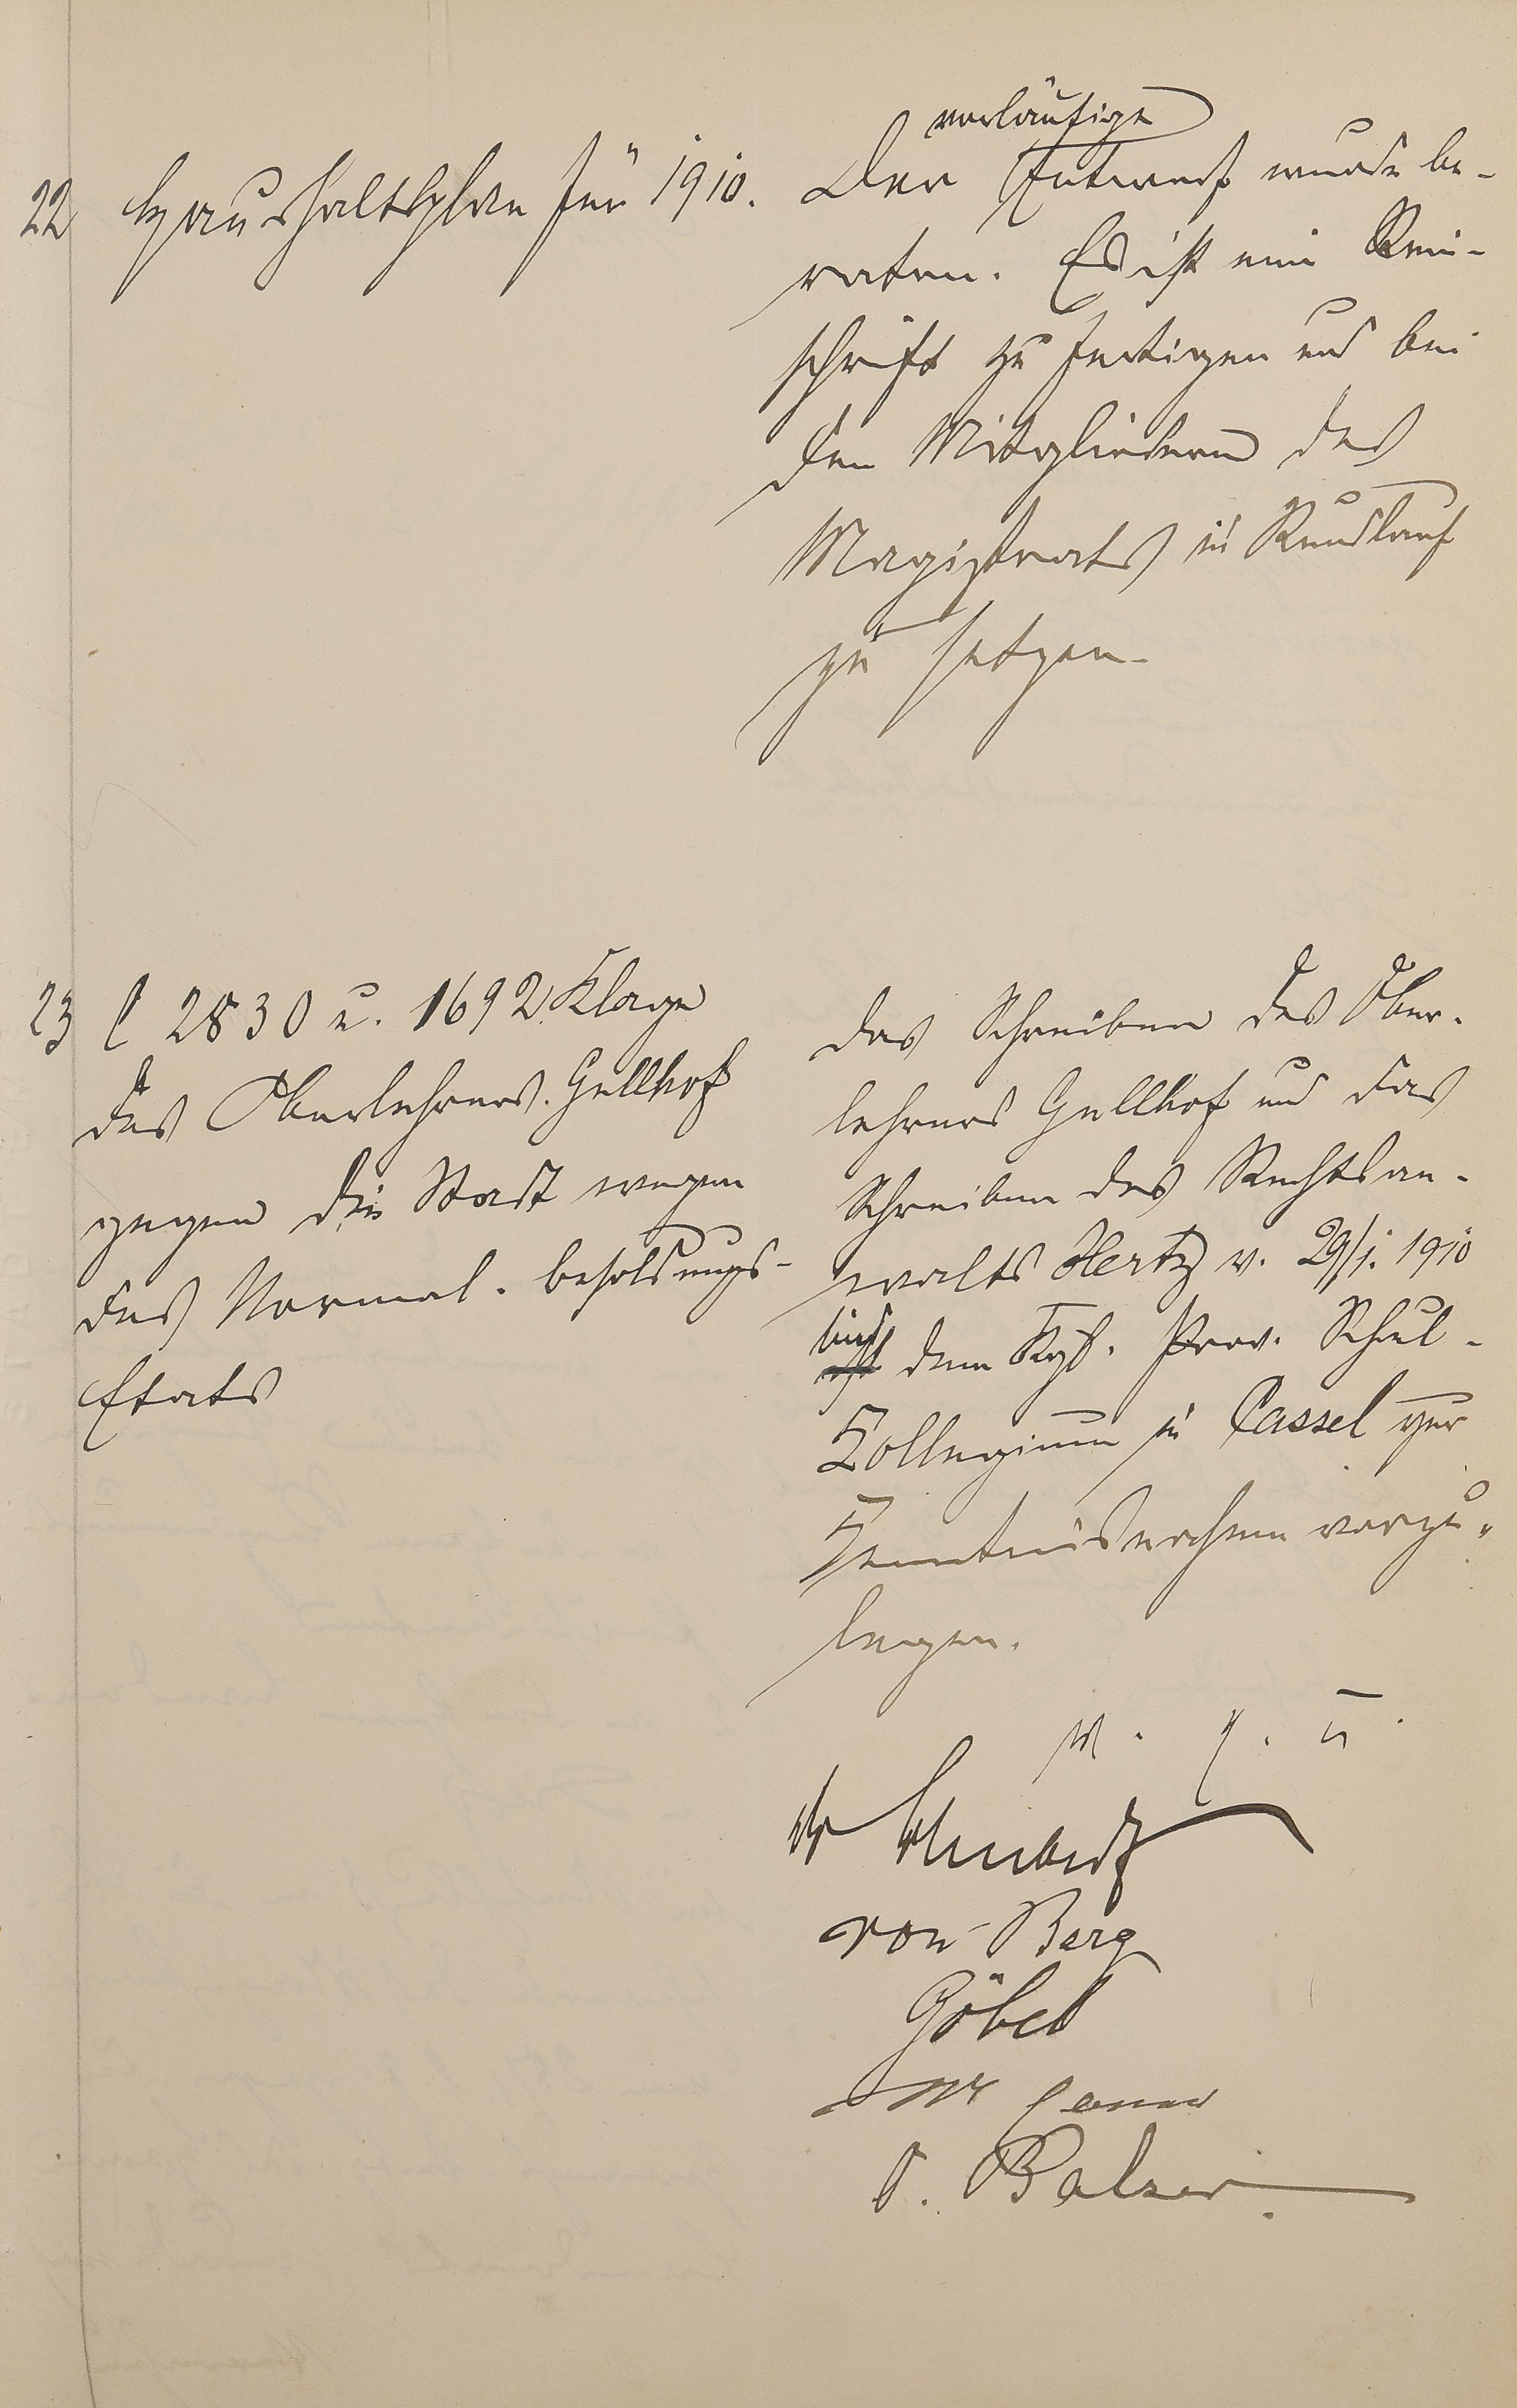 22 Haushaltsplan für 1910.
vorläufige
Der Entwurf wurde be-
raten. Es ist eine Rein-
schrift zu fertigen und bei
den Mitgliedern des
Magistrats in Rundlauf
zu setzen.
23 2830 u. 1692. Klage
des Oberlehrers. Gellhof
gegen die Stadt wegen
des Normal. besoldungs-
Etats
Das Schreiben des Ober-
lehrers Gellhof und das
Schreiben des Rechtsan-
walts Hertz v. 29/1. 1910
sind dem Kgl. Prov. Schul-
Kollegium in Cassel zur
Kenntnisnahme vorzu-
legen.
v. g. u.
von Berg
Göbel
Balzer